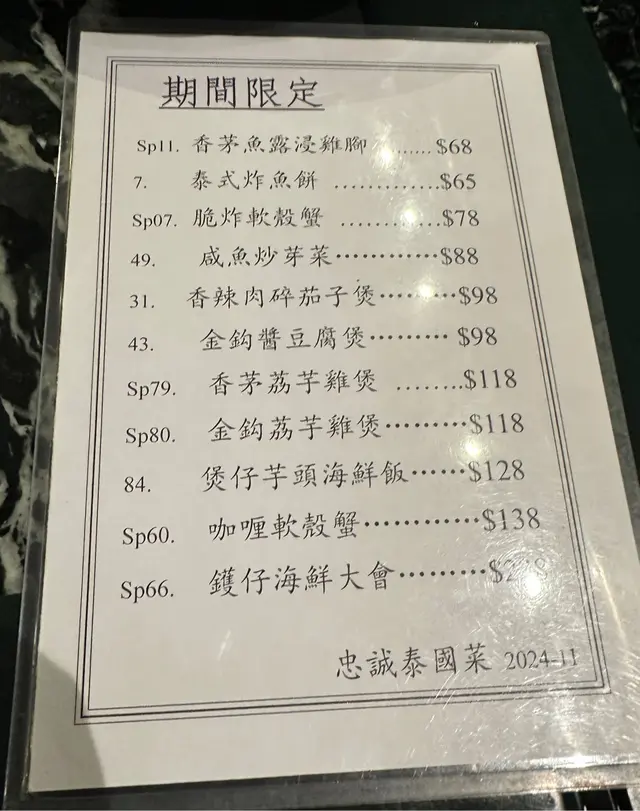 期間限定
Sp11. 香茅魚露浸雞腳 ........ $68
7. 泰式炸魚餅 .............$65
Sp07. 脆炸軟殼蟹 .............$78
49. 咸魚炒芽菜…………$88
31. 香辣肉碎茄子煲………$98
43. 金鈎醬豆腐煲……… $98
Sp79. 香茅荔芋雞煲 ........$118
Sp80. 金鈎荔芋雞煲………$118
84. 煲仔芋頭海鮮飯……$128
Sp60. 咖喱軟殼蟹…………$138
Sp66. 鑊仔海鮮大會………
忠誠泰國菜 2024-11